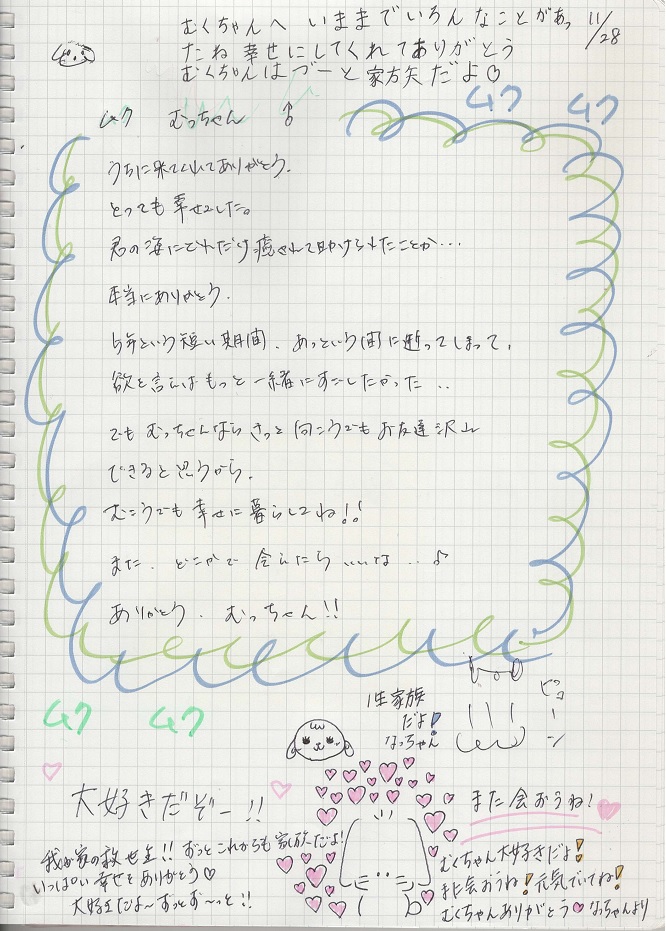 むくちゃんへ いままでいろんなことがあっ 11/28
たね 幸せにしてくれてありがとう
むくちゃんはづーと家族だよ♡
ムク ムク
ムク むっちゃん ♂
うちに来てくれてありがとう.
とっても幸せでした。
君の海にどれだけ癒されて助けられたことか…
本当にありがとう.
5年という短い期間、あっという間に逝ってしまって、
欲を言えばもっと一緒にすごしたかった..
でもむっちゃんならきっと向こうでもお友達沢山
できると思うから.
むこうでも幸せに暮らしてね!!
また、どこかで会えたらいいな…♪
ありがとう、むっちゃん!!
ムク ムク
1生家族
だよ!
なっちゃん
ピコーン
大好きだぞー!!
また会おうね!
我が家の救世主!! ずっとこれからも家族だよ!
いっぱい幸せをありがとう♡
大好きだよ〜ずっとず〜っと!!
むくちゃん大好きだよ!
また会おうね!元気でいてね!
むくちゃんありがとう♥なっちゃんより